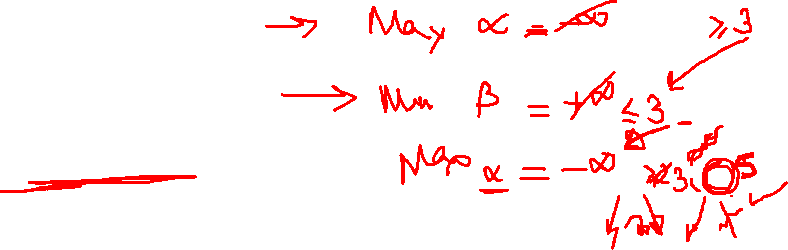 → Max α = -∞ ≥ 3
→ Min β = +∞ ≤ 3
Max α = -∞ 3 5